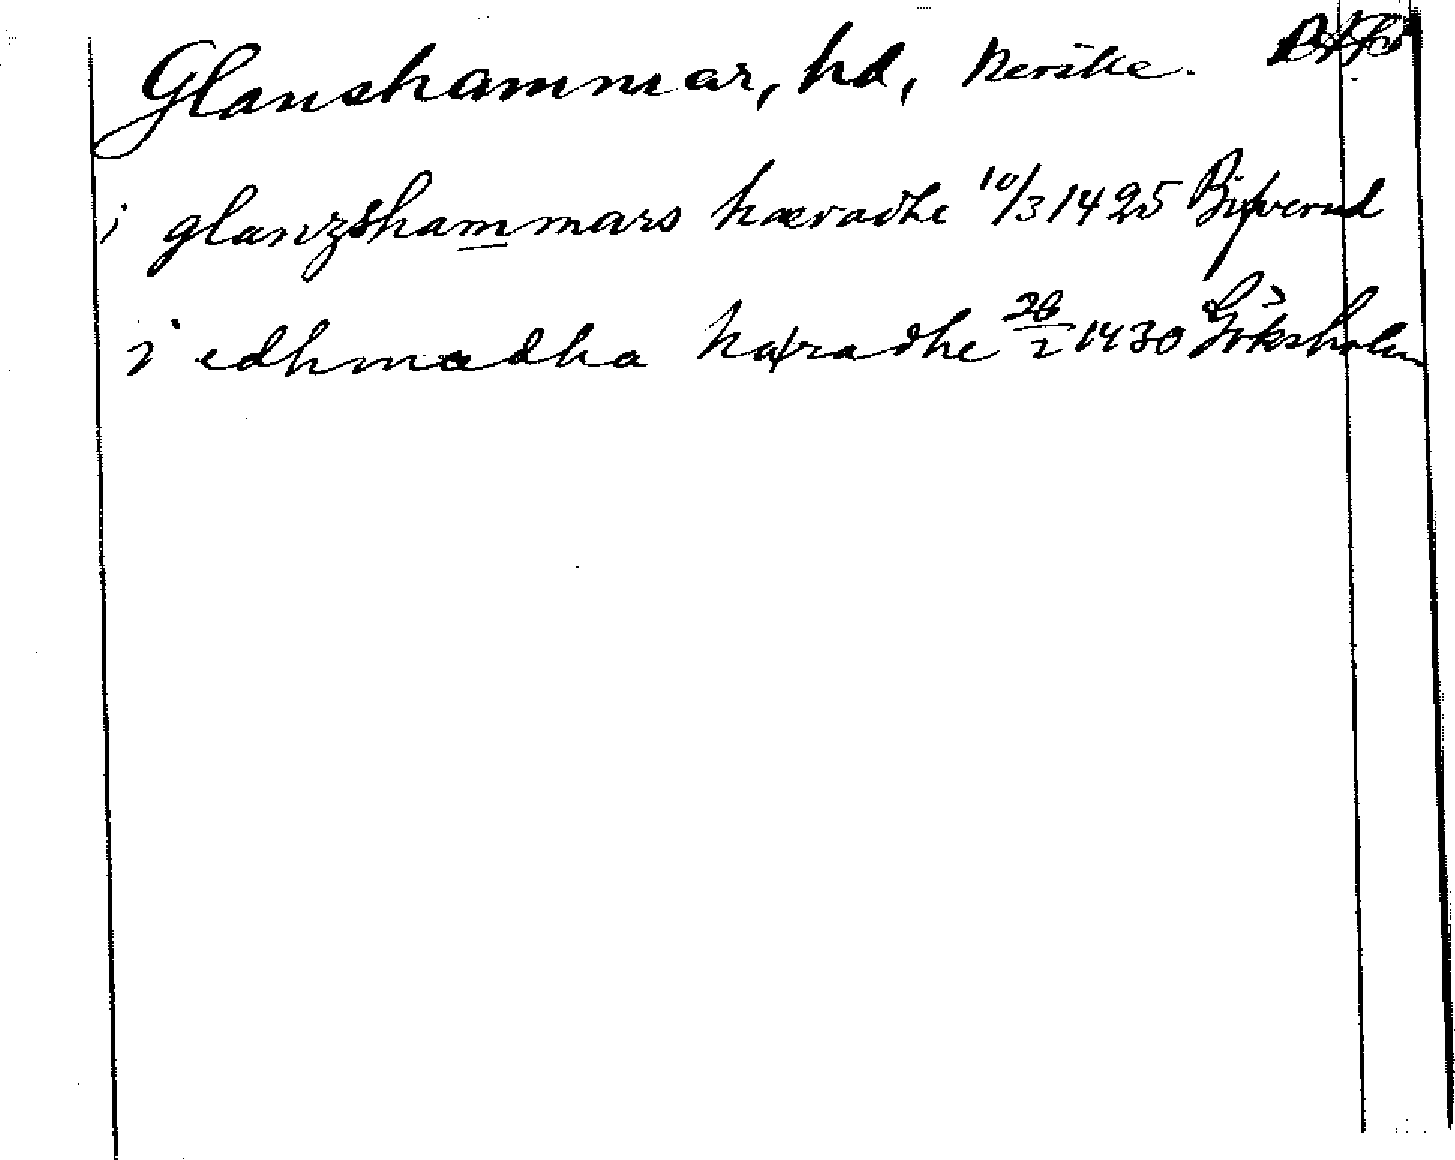 Glanshammar, hd, Nerike.
i glanzshammars hæradhe 10/3 1425
i edhmædha hæradhe 28/2 1430 Göksholm